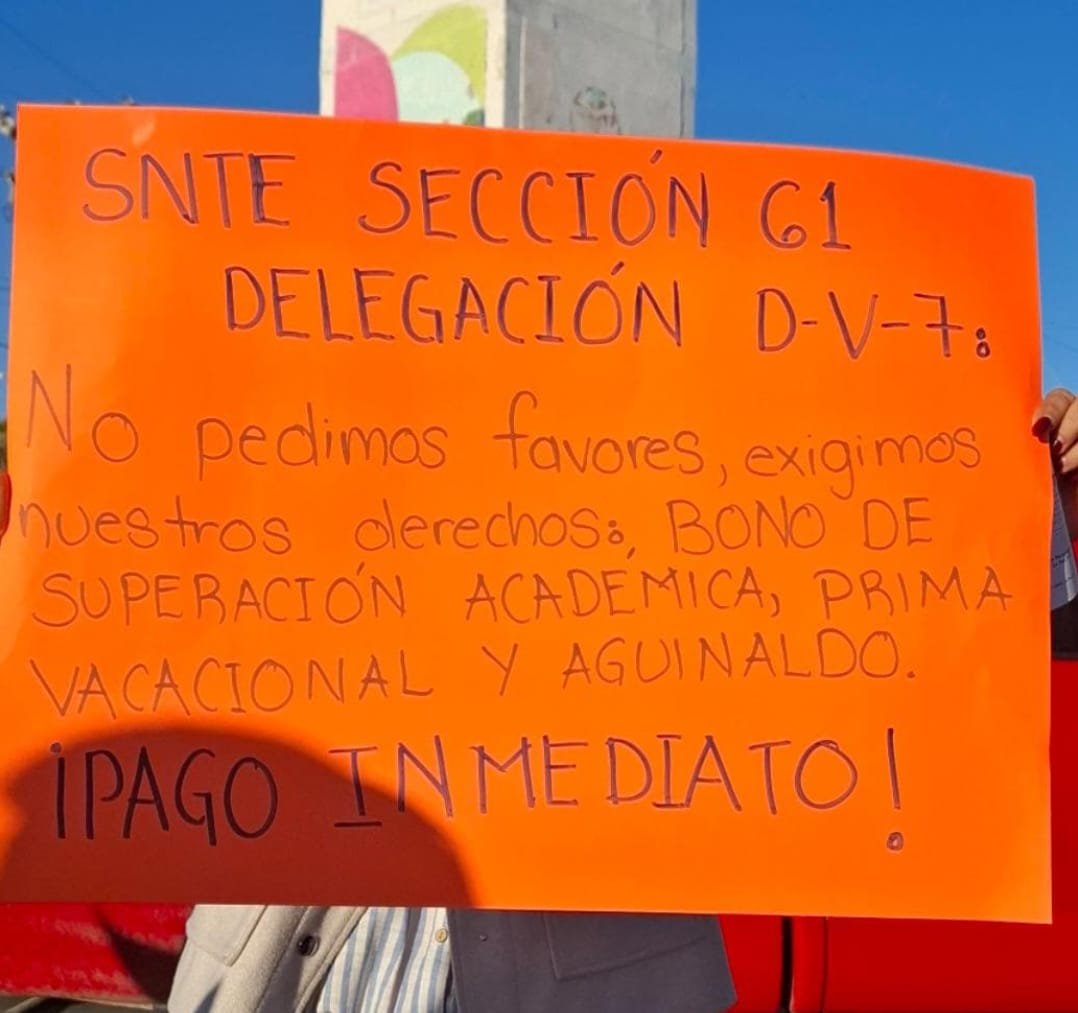 SNTE SECCIÓN 61
DELEGACIÓN D-V-7:
No pedimos favores, exigimos
nuestros derechos:, BONO DE
SUPERACIÓN ACADÉMICA, PRIMA
VACACIONAL Y AGUINALDO.
¡PAGO INMEDIATO!